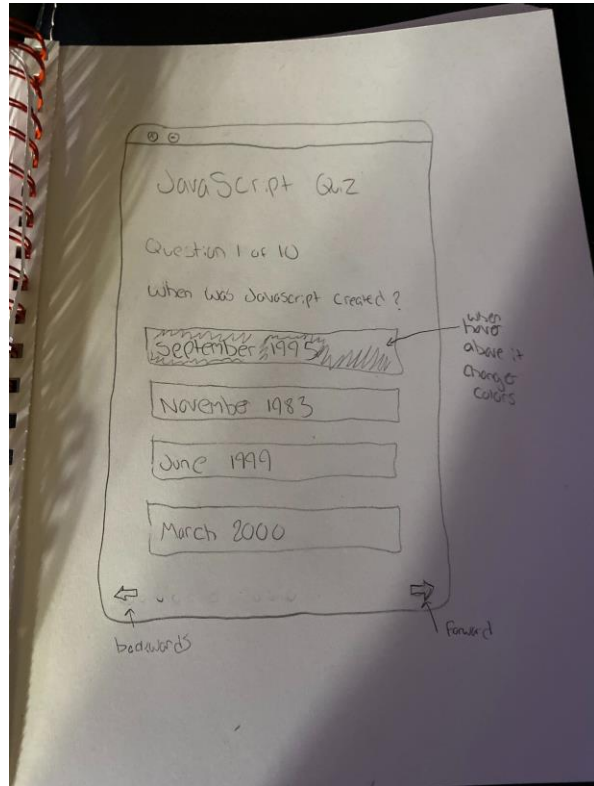 JavaScript Quiz
Question 1 of 10
When was Javascript created?
September 1995
when
hover
above it
changes
colors
November 1983
June 1999
March 2000
backwards
Forward